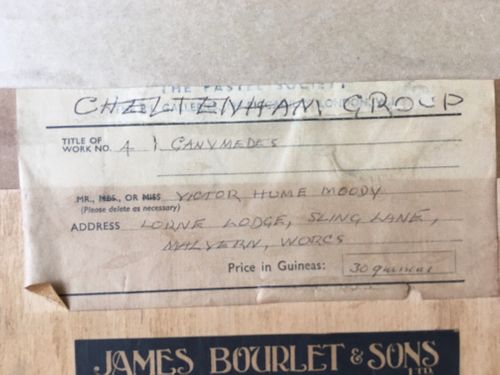 THE PASTEL SOCIETY
CHELTENHAM GROUP
LONDON,
TITLE OF
WORK NO. 4 | GANYMEDES
MR., MRS., OR MISS VICTOR HUME MOODY
(Please delete as necessary)
ADDRESS LORNE LODGE, SLING LANE,
MALVERN, WORCS
Price in Guineas: 30 guineas
JAMES BOURLET & SONS
LTD.